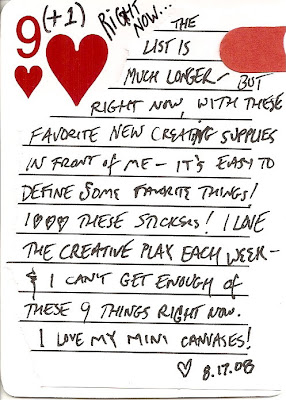 9 (+1) RIGHT NOW... THE
LIST IS
MUCH LONGER - BUT
RIGHT NOW, WITH THESE
FAVORITE NEW CREATING SUPPLIES
IN FRONT OF ME - IT'S EASY TO
DEFINE SOME FAVORITE THINGS!
I ♡♡♡ THESE STICKERS! I LOVE
THE CREATIVE PLAY EACH WEEK -
& I CAN'T GET ENOUGH OF
THESE 9 THINGS RIGHT NOW.
I LOVE MY MINI CANVASES!
♡ 8.17.08